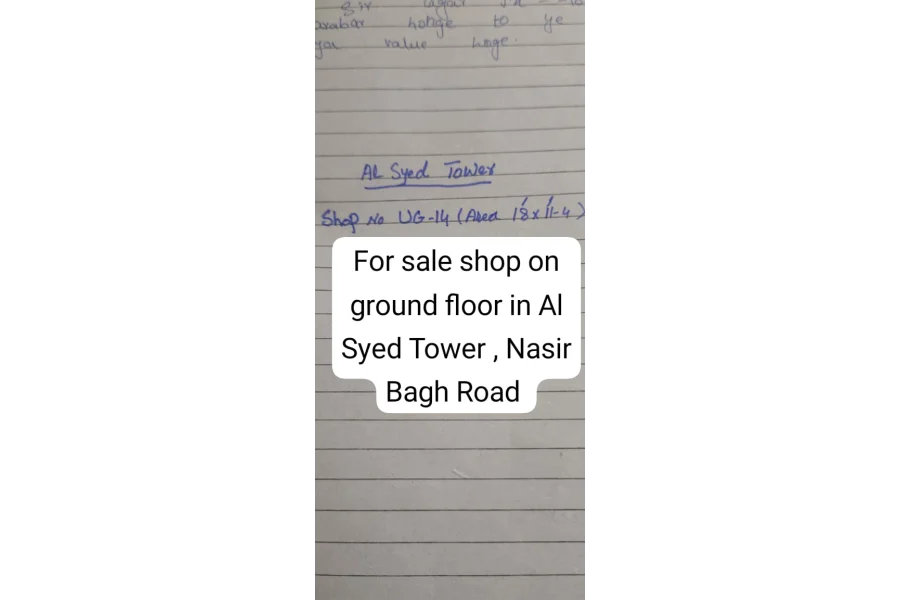 Sir
barabar honge to ye
value honge.
AL Syed Tower
Shop No UG-14 (Area 18'x11'-4)
For sale shop on
ground floor in Al
Syed Tower , Nasir
Bagh Road